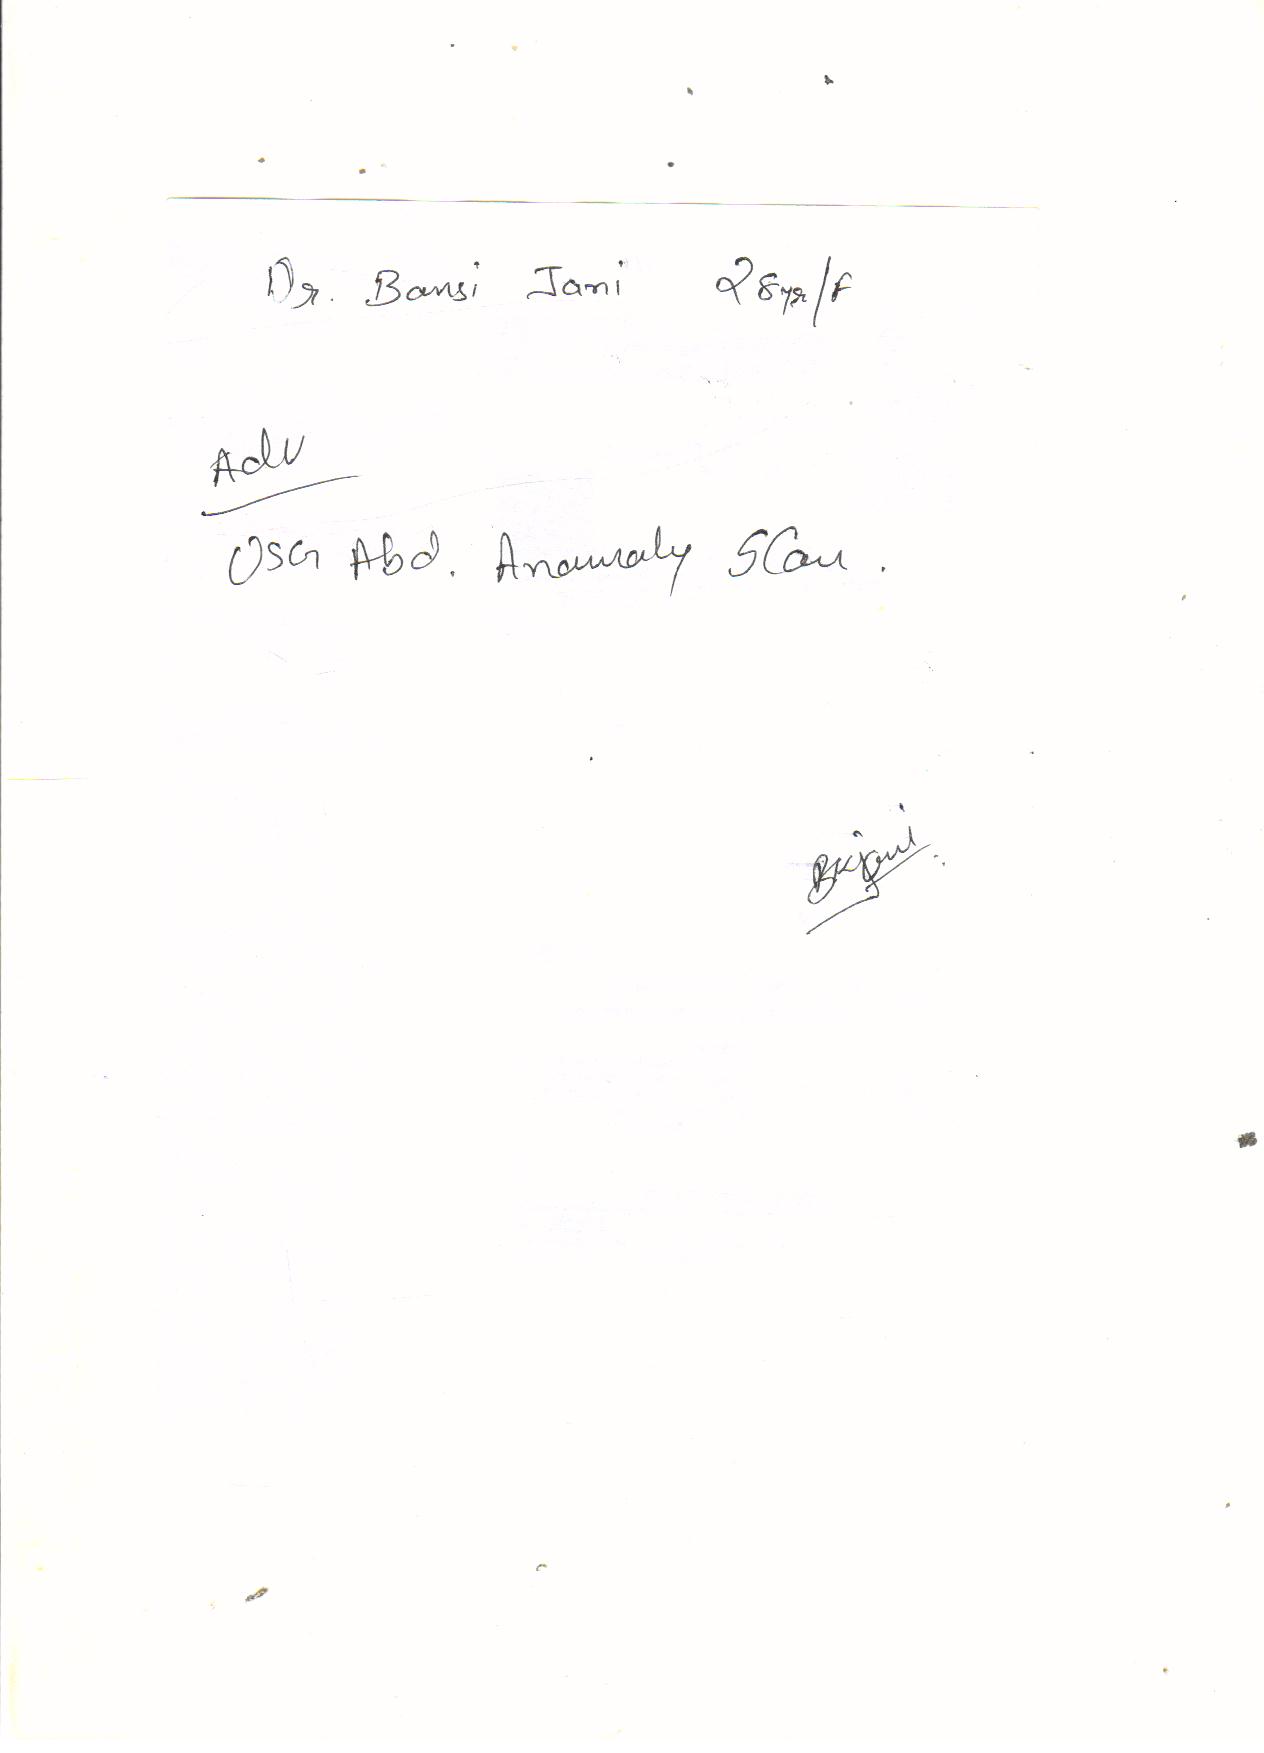 Dr. Bansi Jani 28yr/f
Adv
USG Abd. Anamaly Scan.
BKJani